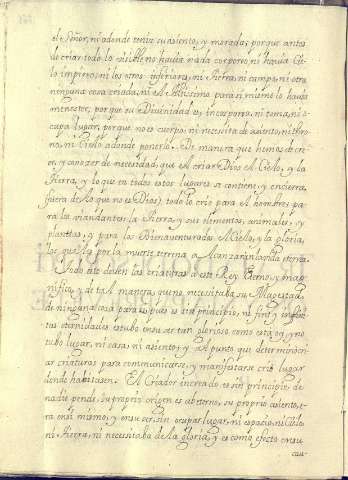 el Señor, ni adonde tenia su asiento, y morada; porque antes
de criar todo lo visible no hauia nada corporeo, ni hauia Cie
lo impireo, ni los otros inferiores, ni tierra, ni campo, ni otra
ninguna cosa criada, ni el Altissimo para si mismo lo hauia
menester, porque su Diuinidad es incorporea, ni toma, ni o
cupa lugar, porque no es cuerpo, ni necesita de asiento, ni thro
no, ni Cielo adonde ponerlo. De manera que hemos de cre
er, y conozer de necesidad, que el criar Dios el Cielo, y la
tierra, y lo que en todos estos lugares se contiene, y encierra,
fuera de lo que no es Dios) todo lo crio para el hombre; pa
ra los viandantes la tierra, y sus elementos, animales, y
planttas, y para los Bienauenturados el Cielo, y la gloria,
los que por la muerte terrena alcanzaran la vida eterna.
Todo esto deuen las criaturas a este Rey Eterno, y mag
nifico, y de tal manera, que no necesitaba su Magestad
de ninguna cosa para si, pues es sin principio, ni fin, y en
tas eternidades estubo en su ser tan glorioso como esta oy, y no
tubo lugar, ni casa, ni asiento; y al punto que determinó cri
ar criaturas para communicarse, y manifestarse crió lugar
donde habitasen. El Criador increado es sin principio, de
nadie pende, su proprio origen es abeterno, su proprio asiento, es
tra en si mismo, y en su ser, sin ocupar lugar, ni espacio, ni Cielo,
ni tierra, ni necesitaba de la gloria, y es como efecto en su
cau-